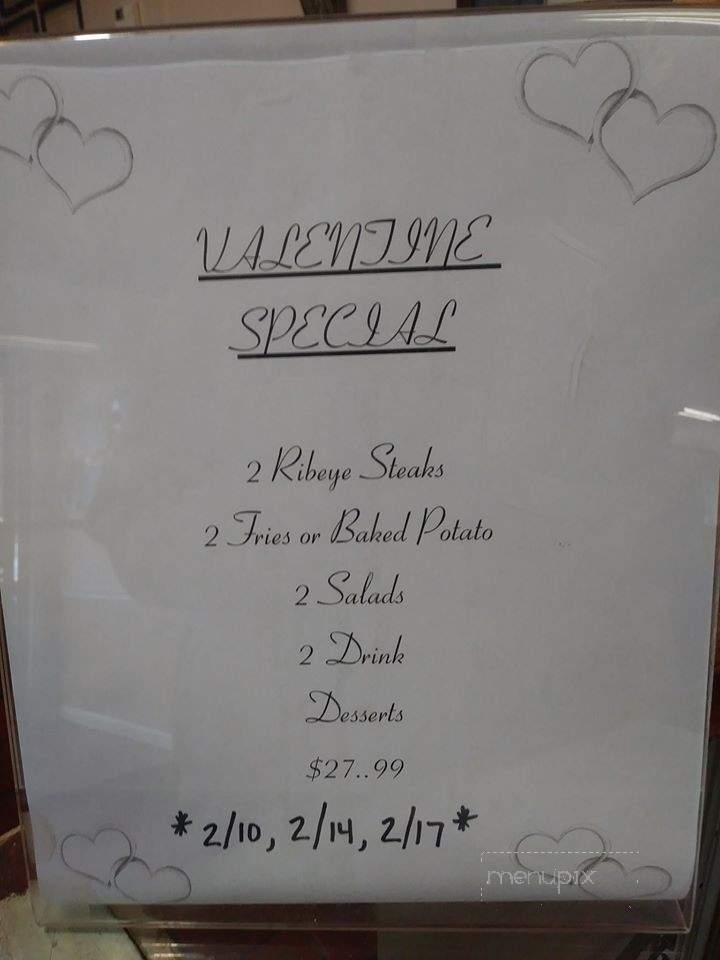 VALENTINE
SPECIAL
2 Ribeye Steaks
2 Fries or Baked Potato
2 Salads
2 Drink
Desserts
$27..99
*2/10, 2/14, 2/17*
menupix